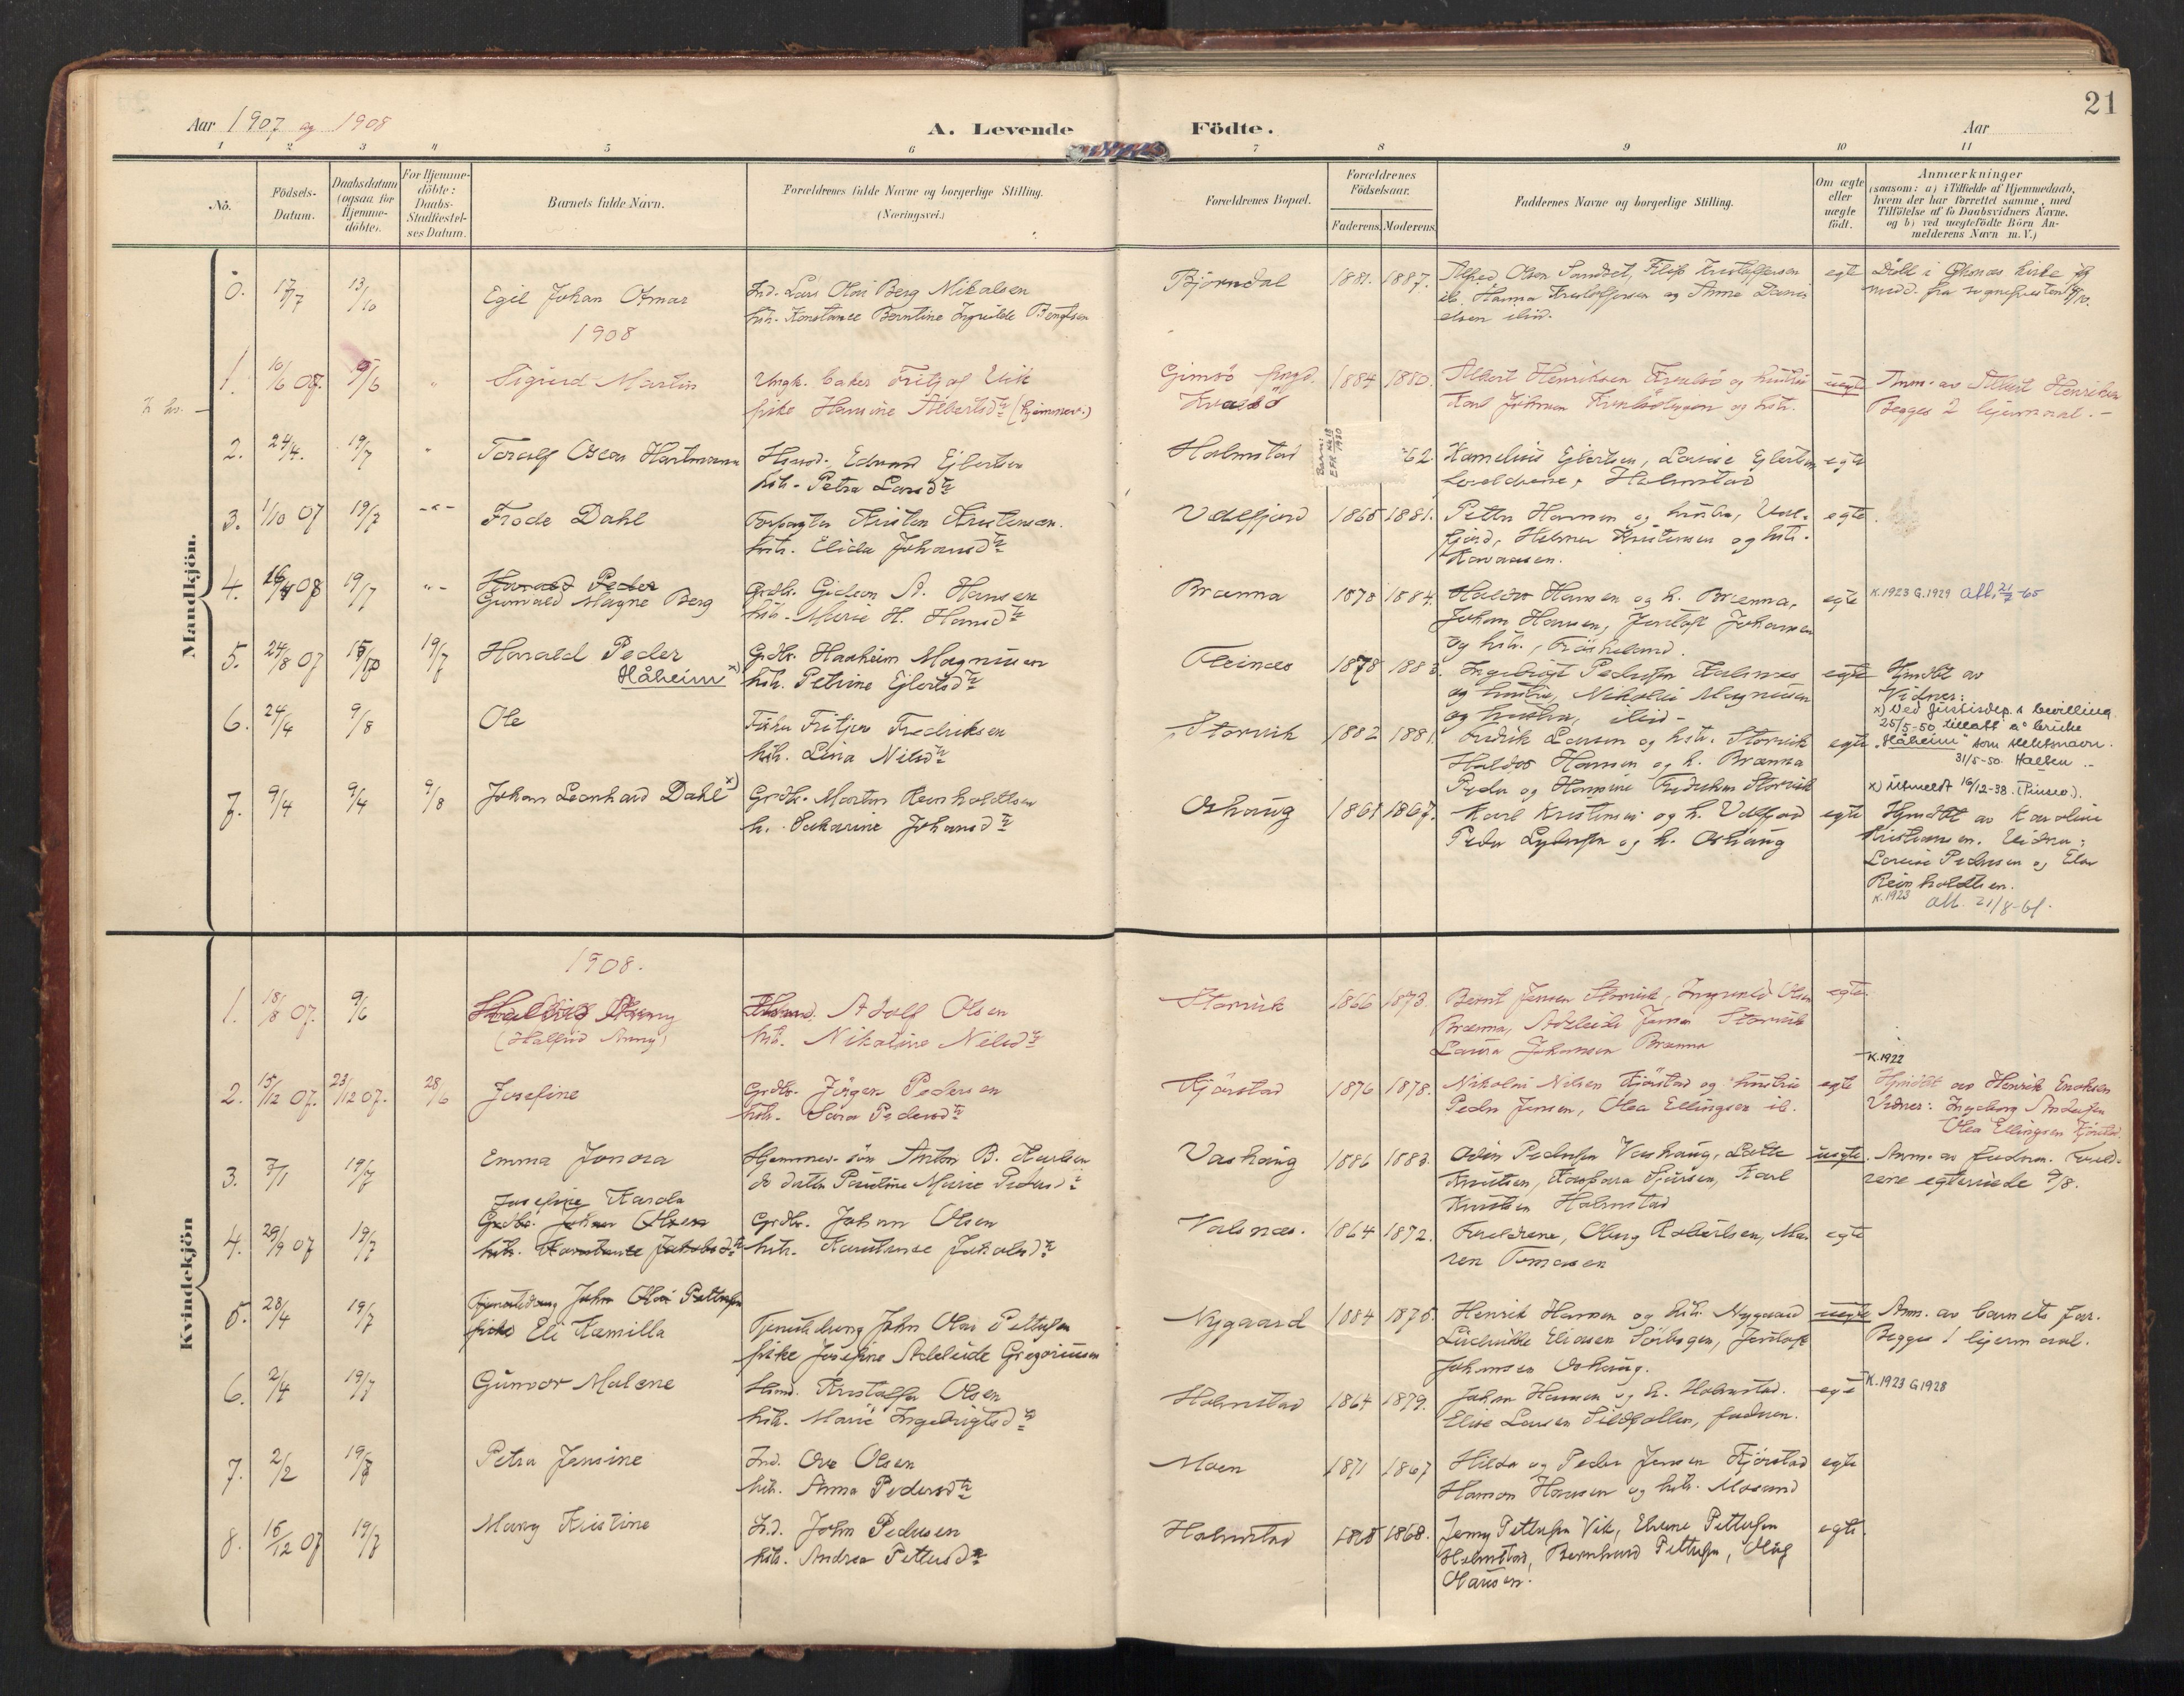 21
Aar 1907 og 1908
A. Levende Födte.
Aar
1 2 3 4 5 6 7 8 9 10 11
No.
Födsels-
Datum.
Daabsdatum
(ogsaa for
Hjemme-
döbte).
For Hjemme-
döbte:
Daabs-
Stadfæstel-
ses Datum.
Barnets fulde Navn.
Forældrenes fulde Navne og borgerlige Stilling.
(Næringsvei.)
Forældrenes Bopæl.
Forældrenes
Födselsaar.
Faderens. Moderens.
Faddernes Navne og borgerlige Stilling.
Om ægte
eller
uægte
födt.
Anmærkninger
(saasom: a) i Tilfælde af Hjemmedaab,
hvem der har forrettet samme, med
Tilföielse af to Daabsvidners Navne,
og b) ved uægtefödte Börn An-
melderens Navn m. V.)
Mandkjön.
17/7 13/10 Egil Johan Otmar
Ind. Lars Olai Berg Nikolaisen
hstr. Konstance Berntine Ingvilde Bengtsen
Bjørndal 1881. 1887.
Alfred Olsen Sandset, Filip Kristoffersen
ib. Hanna Kristoffersen og Anna Dani
elsen ibid.
egte
Døbt i kirke
medd. fra sognepresten
1908
1. 10/6 07. 9/6 Sigurd Martin
Ungk. baker Fritjof Vik
pike Hansine Albertsdtr (hjemmev.)
Gimsö prgd.
Kvalsö
1884 1880.
Albert Henriksen Kvalsö og hustru
Karl Johnsen og hstr.
uegte
Anm. av Albert Henriksen
Begges 2 leiermaal.
2. 24/4. 19/7 Toralf Oscar Hartmann
Husmd. Edvard Ejlertsen
hstr. Petra Larsdtr
Holmstad 62
Kornelius Ejlertsen, Lovise Ejlertsen
foreldrene, Holmstad
egte
3. 1/10 07 19/7 Frode Dahl
Forpagter Kristen Kristensen.
hstr. Elida Johansdtr
Valfjord 1865 1881.
Petter Hansen og hustru, Val-
fjord, Helmer Kristensen og hstr.
egte
4. 16/4 08 19/7 Harald Peder
Gunvald Magne Berg
Grdbr. Gideon A. Hansen
hstr. Marie H. Hansdtr
Brænna 1878 1884.
Haldor Hansen og h. Brænna,
Johan Hansen, Jentoft Johansen
og hstr., Fröskeland.
egte
K.1923 G.1929 att. 21/7-65
5. 24/8 07 15/10 19/7 Harald Peder
Håheim x)
Grdbr. Haaheim Magnussen
hstr. Petrine Ejlertsdtr
Fleines 1878 1883.
Ingebrigt Pedersen
og hustru, Nikolai Magnussen
og hustru, ibid.
egte
Hjmdbt av
Vidner:
x) Ved Justisdep.s bevilling
25/5-50 tillatt å bruke
"Håheim" som slektsnavn.
31/5-50. Halsen
6. 24/4 9/8 Ole
Fisker Fritjov Fredriksen
hstr. Lina Nilsdtr
Storvik 1882 1881.
Fredrik Larsen og hstr. Storvik
Haldor Hansen og h. Brænna
Peder og Hansine Fredriksen Storvik
egte
7. 9/4 9/4 9/8 Johan Leonhard Dahl x)
Grdbr. Martin Reinholdtsen
h. Sakarine Johansdtr
Oshaug 1861 1867.
Karl Kristensen og h. Valfjord
Peder Lydersen og h. Oshaug
egte
x) utmeldt 16/12-38. (Pinsev.).
Hjmdbt av Karoline
Kristiansen. Vidner:
Lovise Pedersen og Elen
Reinholdtsen.
K.1923 att. 21/8-61.
Kvindekjön
1908.
1. 18/8 07. 9/6
(Halfrid Anny)
Husmd. Adolf Olsen
hstr. Nikoline Nilsdtr
Storvik 1866 1873.
Bernt Jensen Storvik, Ingvald Olsen
Brænna, Adeleide Jensen Storvik
Laura Johansen Brænna
egte.
2. 15/12 07. 23/12 07. 28/6 Josefine
Grdbr. Jörgen Pedersen
hstr. Sara Pedersdtr
Kjörstad 1876 1878.
Nikolai Nilsen Kjörstad og hustru
Peder Jensen, Olea Ellingsen ib.
egte
K.1922
Hjmdbt av Henrik Enoksen
Vidner: Ingeborg Andersen
Olea Ellingsen Kjörstad.
3. 7/1 19/7 Emma Jonora
Hjemmev. søn Anton B. Karlsen
do datter Pauline Marie Pedersdtr
Vashaug 1886 1883.
Odin Pedersen Vashaug, Lotte
Knutsen, Kaspara Sjursen, Karl
Knutsen Holmstad
uegte.
Anm. av faderen. Foreld-
rene egteviede 9/8.
4. 29/9 07 19/7 Josefine Karola
Grdbr. Johan Olsen
hstr. Konstance Jakobsdtr
Grdbr. Johan Olsen
hstr. Konstanse Jakobsdtr
Valsnæs. 1864 1872.
Foreldrene, Oluug Robertsen, Ma-
ren Tomassen
egte
5. 28/4 19/7
Tjenestedreng John Olai Pettersen
pike Eli Kamilla
Tjenestedreng John Olai Pettersen
pike Josefine Adeleide Gregoriussen
Nygaard 1884 1878.
Henrik Hansen og hstr. Nygaard
Ludvikke Eliasen Sörbogen, Jentoft
Johansen Oshaug.
uegte
Anm. av barnets far.
Begges 1 leiermaal.
6. 2/4 19/7 Gunvor Malene
Husmd. Kristoffer Olsen
hstr. Marie Ingebrigtsdtr
Holmstad 1864 1879.
Johan Hansen og h. Holmstad.
Elise Larsen Sildpollen, faderen.
egte
K.1923 G1928
7. 2/2 19/7 Petra Jensine
Ind. Ove Olsen
hstr. Anna Pedersdtr
Moen 1871 1867
Hilda og Peder Jensen Kjörstad
Hamon Hansen og hstr. Mosand
egte
8. 15/12 07 19/7 Mary Kristine
Ind. John Pedersen
hstr. Andrea Pettersdtr
Holmstad 1868.
Jenny Pettersen Vik, Elvine Pettersen
Holmstad, Bernhard Pettersen, Oluf
Olaussen.
egte